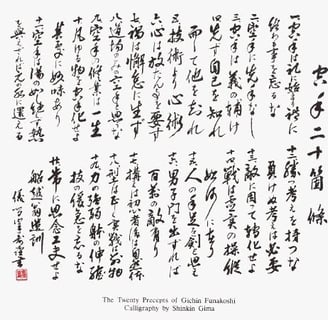 空手二十箇條
一空手は礼に始まり礼に
終る事を忘るな
二空手に先手なし
三空手は義の輔け
四先ず自己を知れ
而して他を知れ
五技術より心術
六心は放たん事を要す
七禍は懈怠に生ず
八道場のみの空手と思うな
九空手の修業は一生
十凡ゆる物を空手化せよ
其処に妙味あり
十一空手は湯の如し絶えず熱
を与えざれば元の水に還る
十二勝つ考えは持つな
負けぬ考えは必要
十三敵に因って轉化せよ
十四戦は虚実の操縦
如何に在り
十五人の手足を剣と思え
十六男子門を出ずれば
百万の敵有り
十七構えは初心者に後は自然体
十八型は正しく実戦は別物
十九力の強弱体の伸縮
技の緩急を忘るな
二十常に思念工夫せよ
The Twenty Precepts of Gichin Funakoshi
Calligraphy by Shinkin Gima